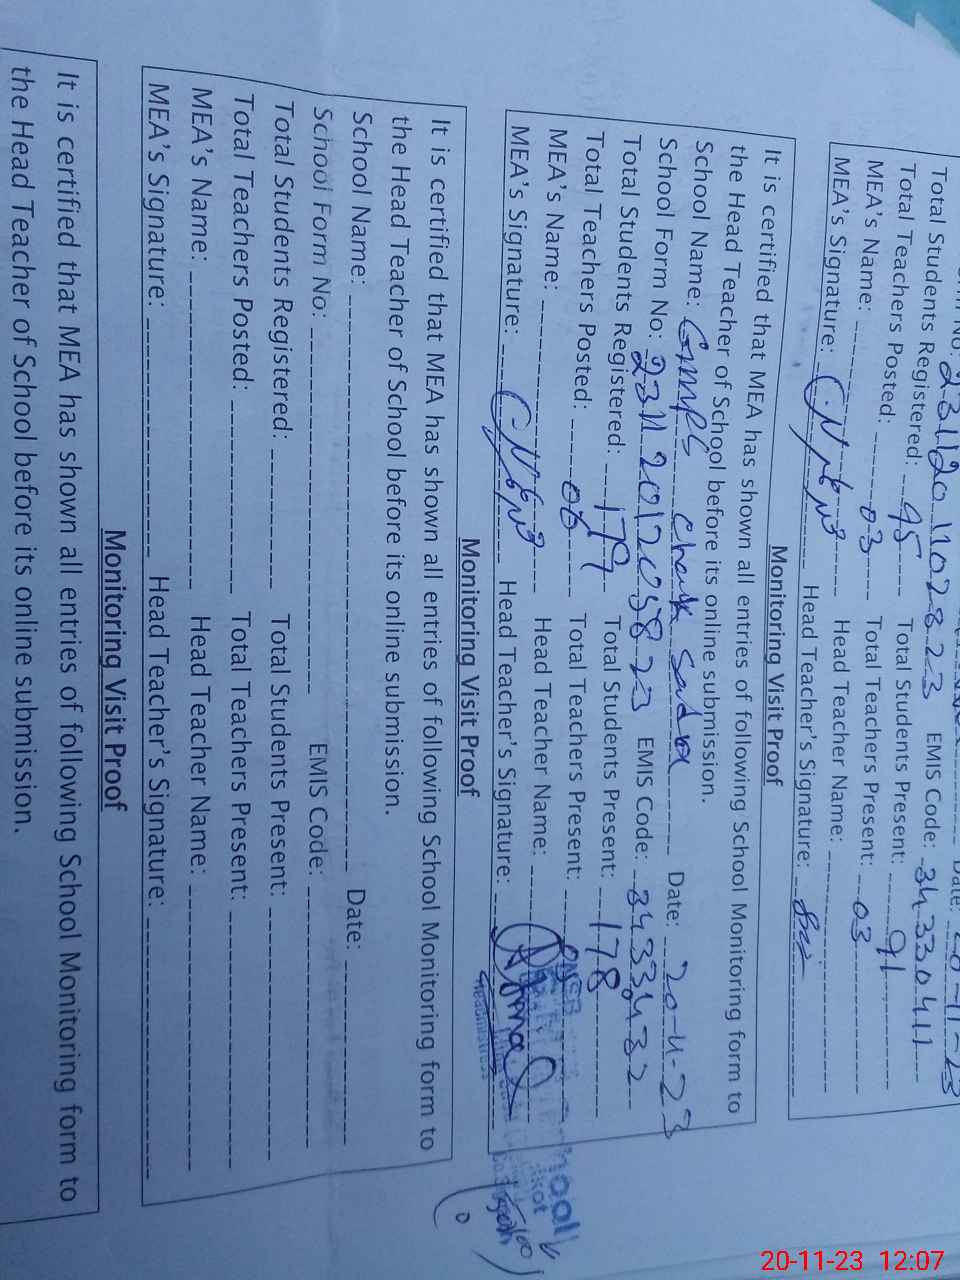 Total Students Registered: 95 Total Students Present: 91
Total Teachers Posted: 03 Total Teachers Present: 03
MEA's Name: Head Teacher Name:
MEA's Signature: Head Teacher's Signature:
Monitoring Visit Proof
It is certified that MEA has shown all entries of following School Monitoring form to
the Head Teacher of School before its online submission.
School Name: Gmmps chak Sada Date: 20-11-23
School Form No: 2311201205823 EMIS Code: 34330432
Total Students Registered: 179 Total Students Present: 178
Total Teachers Posted: 06 Total Teachers Present:
MEA's Name: Head Teacher Name:
MEA's Signature: Head Teacher's Signature:
Headmistress
Monitoring Visit Proof
It is certified that MEA has shown all entries of following School Monitoring form to
the Head Teacher of School before its online submission.
School Name: Date:
School Form No: EMIS Code:
Total Students Registered: Total Students Present:
Total Teachers Posted: Total Teachers Present:
MEA's Name: Head Teacher Name:
MEA's Signature: Head Teacher's Signature:
Monitoring Visit Proof
It is certified that MEA has shown all entries of following School Monitoring form to
the Head Teacher of School before its online submission.
20-11-23 12:07